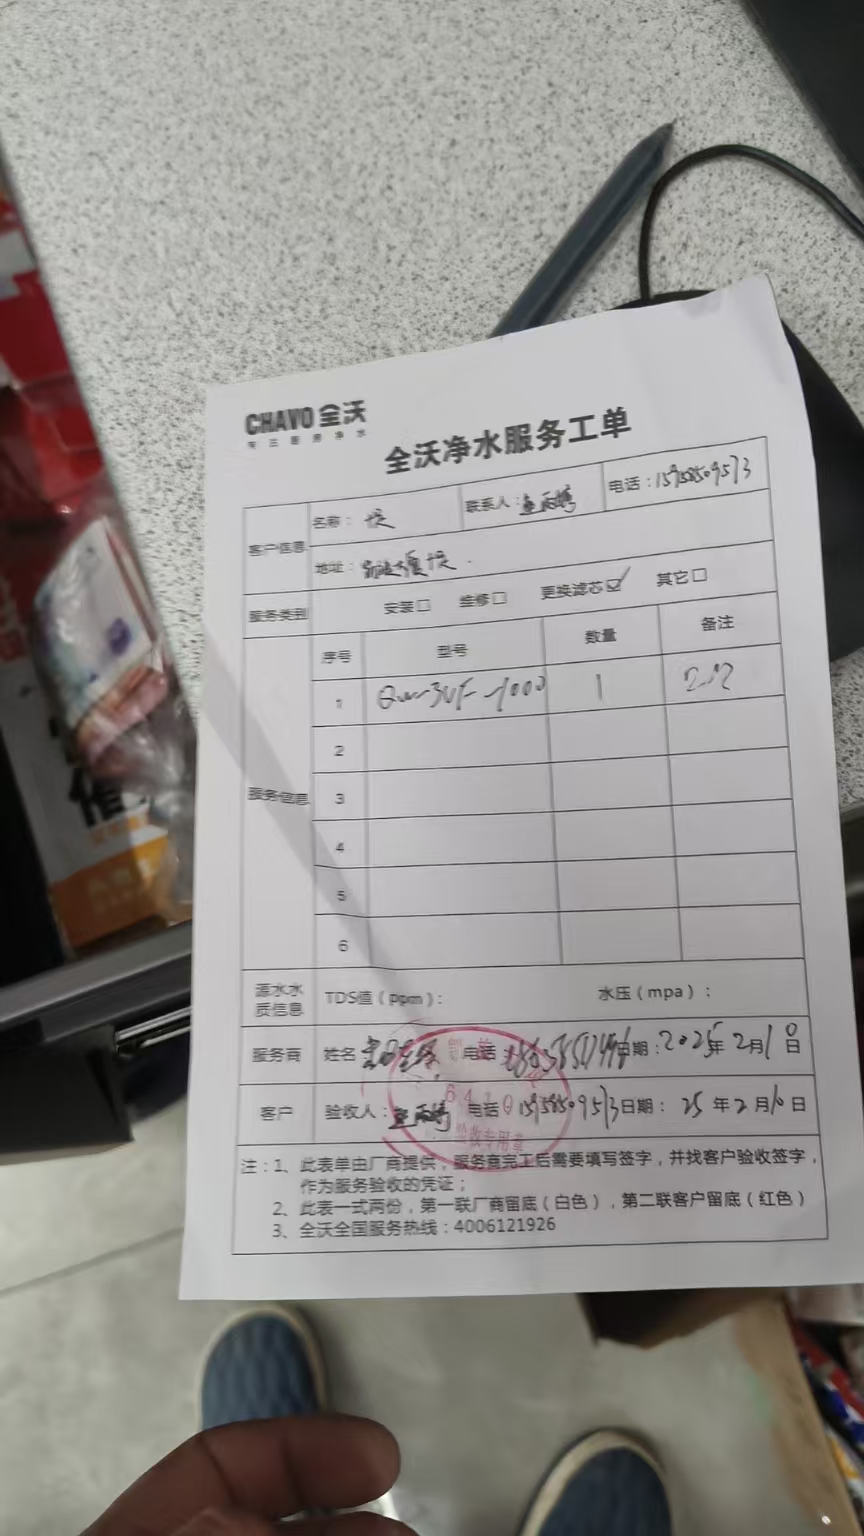 CHAVO 全沃
专注厨房净水
全沃净水服务工单
客户信息
名称：
联系人：
电话：15958509573
地址：
服务类别
安装□ 维修□ 更换滤芯☑ 其它□
服务信息
序号 型号 数量 备注
1 1
2
3
4
5
6
源水水质信息
TDS值（ppm）： 水压（mpa）：
服务商 姓名 电话 日期：2025年2月10日
客户 验收人： 电话 15958509573 日期：25年2月10日
验收专用章
注：1、此表单由厂商提供，服务商完工后需要填写签字，并找客户验收签字，
作为服务验收的凭证；
2、此表一式两份，第一联厂商留底（白色），第二联客户留底（红色）
3、全沃全国服务热线：4006121926